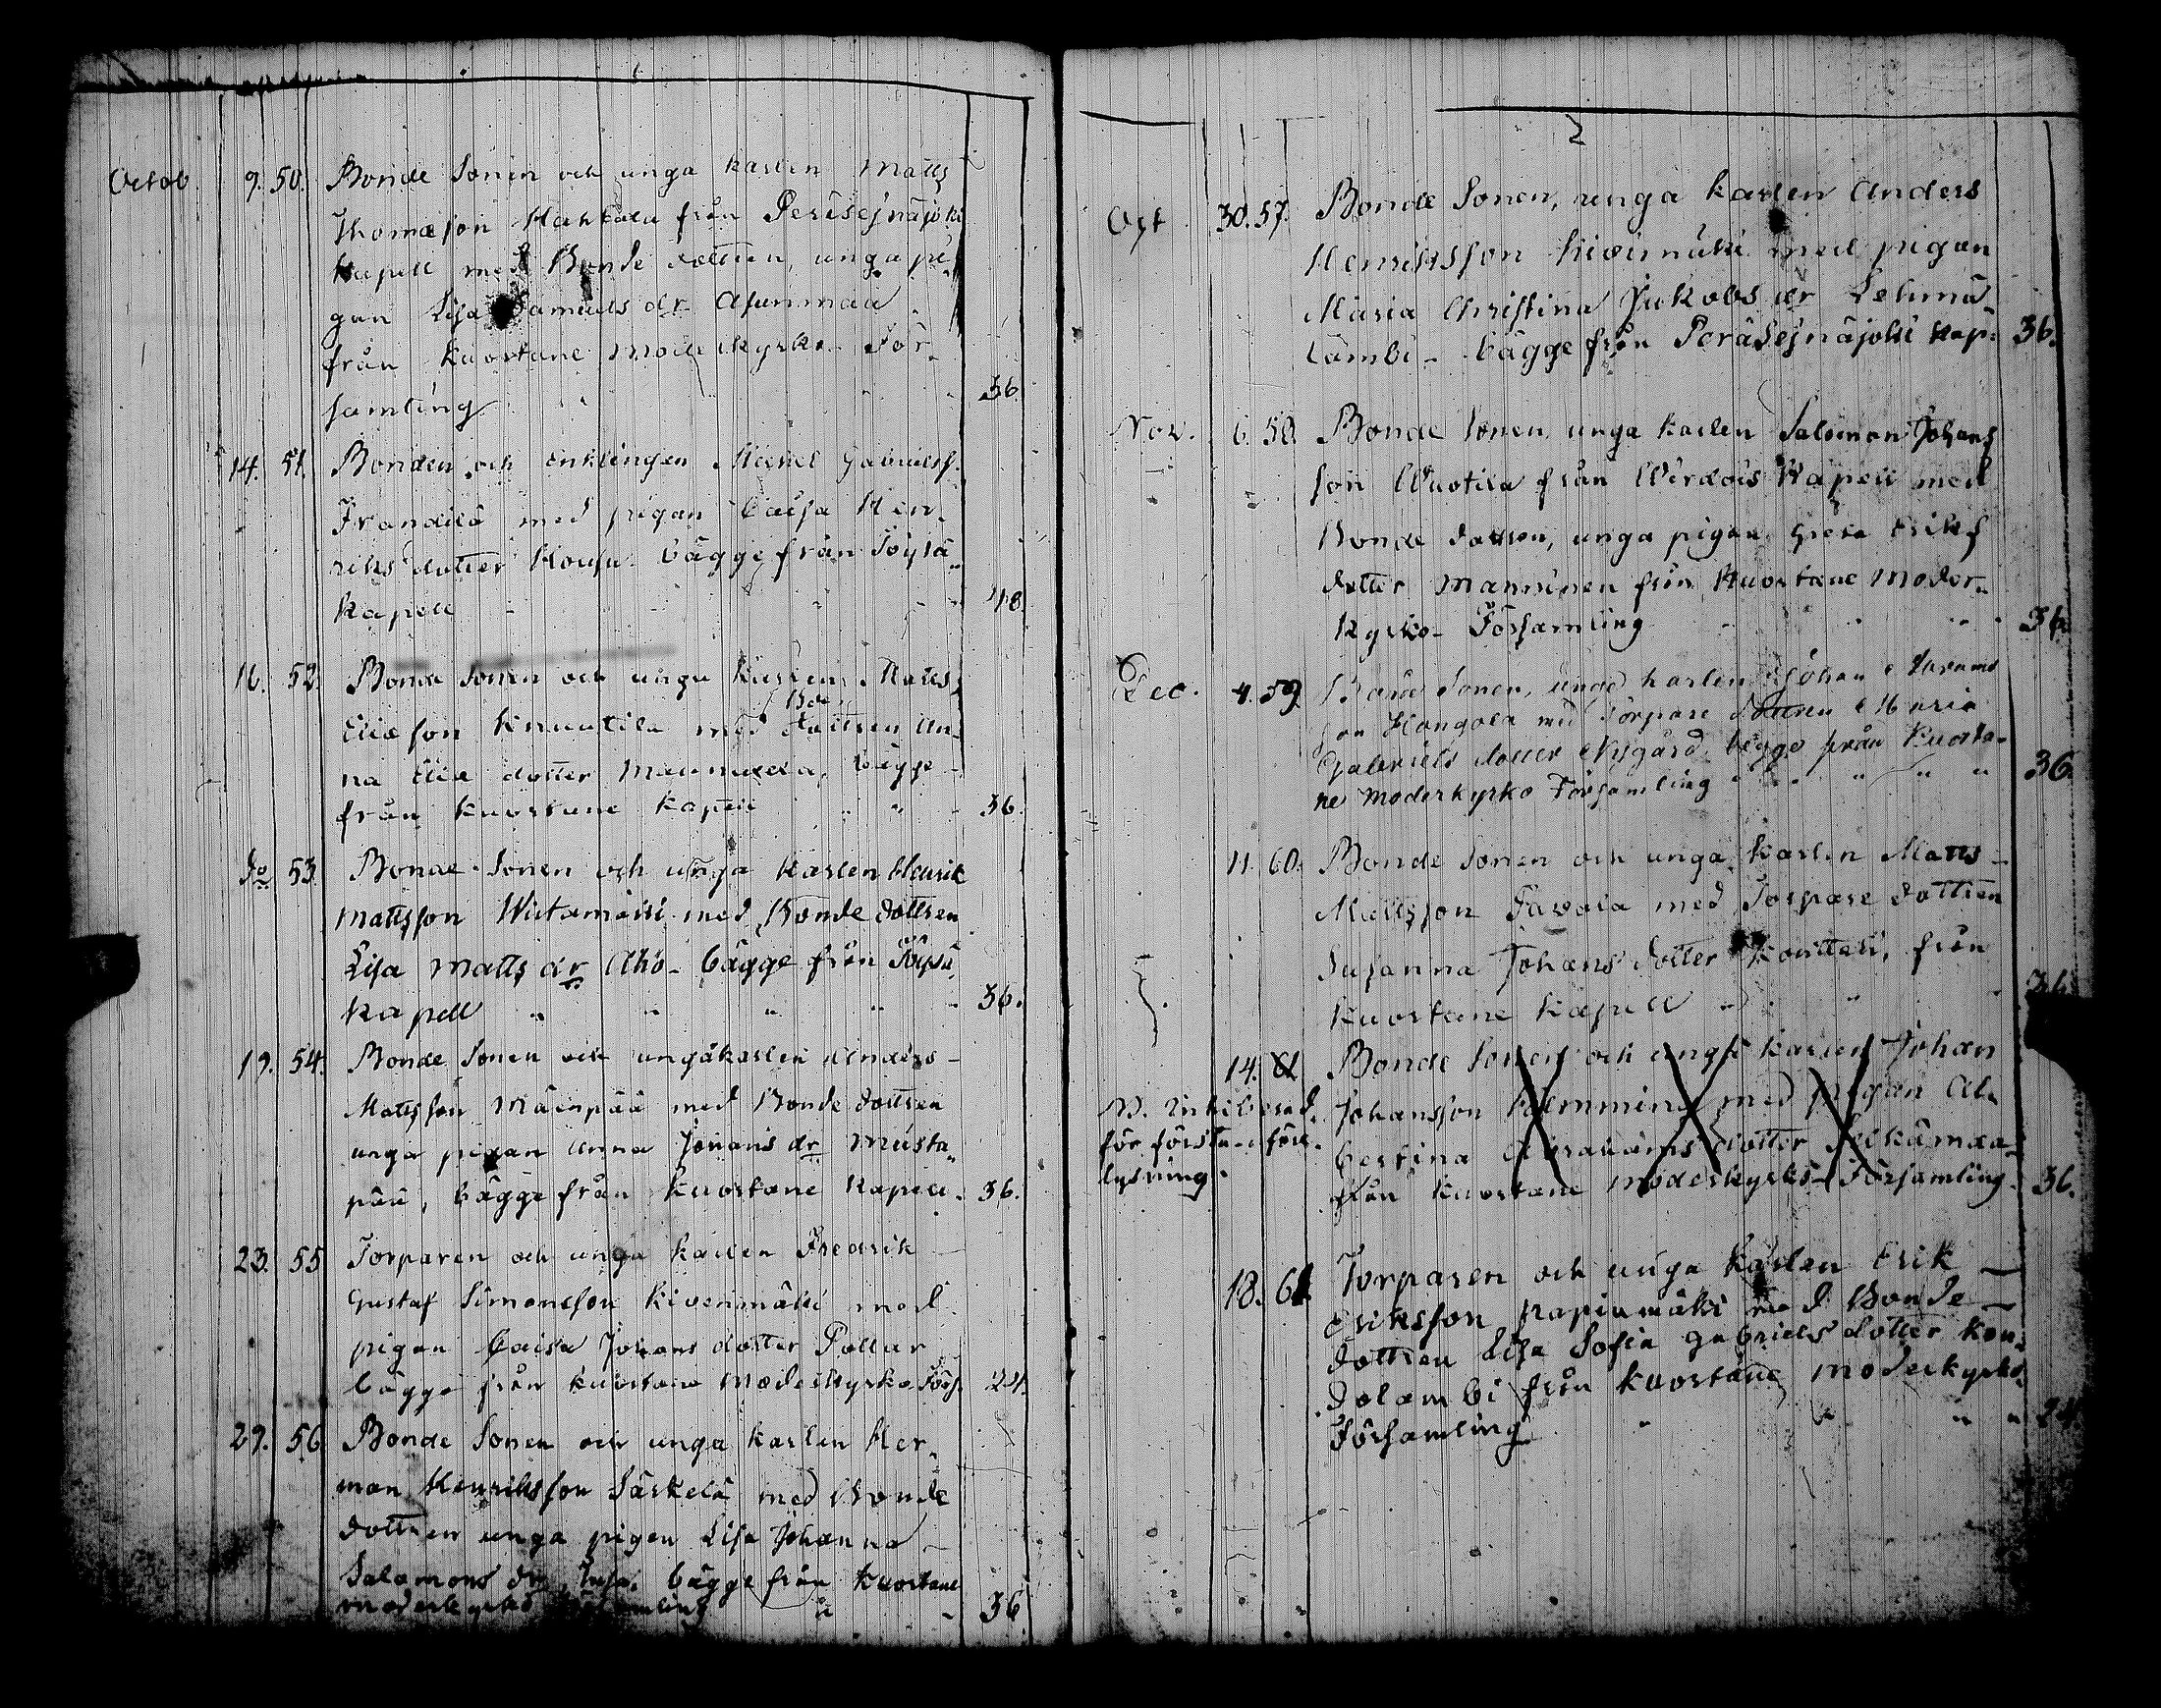 Octob. 9. 50. Bonde Sonen och unga karlen Matts
Thomæson från Peräsejnäjoki
kapell med Bonde dottren, unga pi-
gan Lisa Samuels dr Asunmaa
från Kuortane Moderkyrko För-
samling 36.
14. 51. Bonden och enklingen Michel Gabrielss.
med pigan Caisa Hen-
riks dotter bägge från Töysä
Kapell 48.
16. 52. Bonde Sonen och unga karlen Matts
Bde
Eliæson Knuutila med dottren An-
na Eliæ dotter bägge
från Kuortane kapell 36.
do 53. Bonde Sonen och unga karlen Henrik
Mattsson Wiitamäki med Bonde dottren
Lisa Matts dr Aho bägge från Töysä
kapell 36.
19. 54. Bonde Sonen och unga karlen Anders
Mattsson Mäenpää med Bonde dottren
unga pigan Anna Johans dr Musta-
pää, bägge från Kuortane Kapell. 36.
23. 55. Torparen och unga karlen Fredrik
Gustaf Simonsson Kivenmäki med
pigan Caisa Johans dotter Pollar
bägge från Kuortane Moderkyrko Förs. 24.
29. 56. Bonde Sonen och unga karlen Her-
man Henriksson Särkelä med Bonde
dottren unga pigan Lisa Johanna
Salomons dr bägge från Kuortane
moderkyrko Församling 36
2
Oct 30. 57. Bonde Sonen, unga karlen Anders
Henriksson Kivimäki med pigan
Maria Christina Jakobs dr Lehmä
lambi - bägge från Peräsejnäjoki kap: 36.
Nov. 6. 58. Bonde Sonen, unga karlen Salomon Johans
son Wuotila från Wirdois Kapell med
Bonde dottren, unga pigan Greta Eriks
dotter Manninen från Kuortane Moder-
Kyrko Församling 36.
Dec. 4. 59. Bonde Sonen, unga karlen Johan Abrams
son Hangola med Torpare dottren Maria
Gabriels dotter Nygård, bägge från Kuorta-
ne Moderkyrko Församling 36.
11. 60. Bonde Sonen och unga karlen Matts
Mattsson Tavala med Torpare dottren
Susanna Johans dotter från
Kuortane Kapell 36.
14. 61. Bonde Sonen och unga karlen Johan
Johansson med pigan Al-
bertina Abrahams dotter
från Kuortane moderkyrko Församling 36.
för första
lysning.
18. 61. Torparen och unga karlen Erik
Eriksson Papinmäki med Bonde
dottren Lisa Sofia Gabriels dotter Kon-
dolambi från Kuortane moderkyrko
Församling 24.